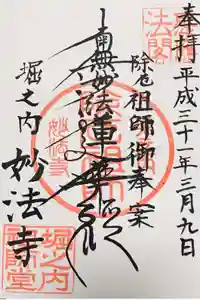 奉拝
平成三十一年三月九日
除厄祖師御奉安
南無妙法蓮華経
堀之内
妙法寺
堀之内
祖師堂